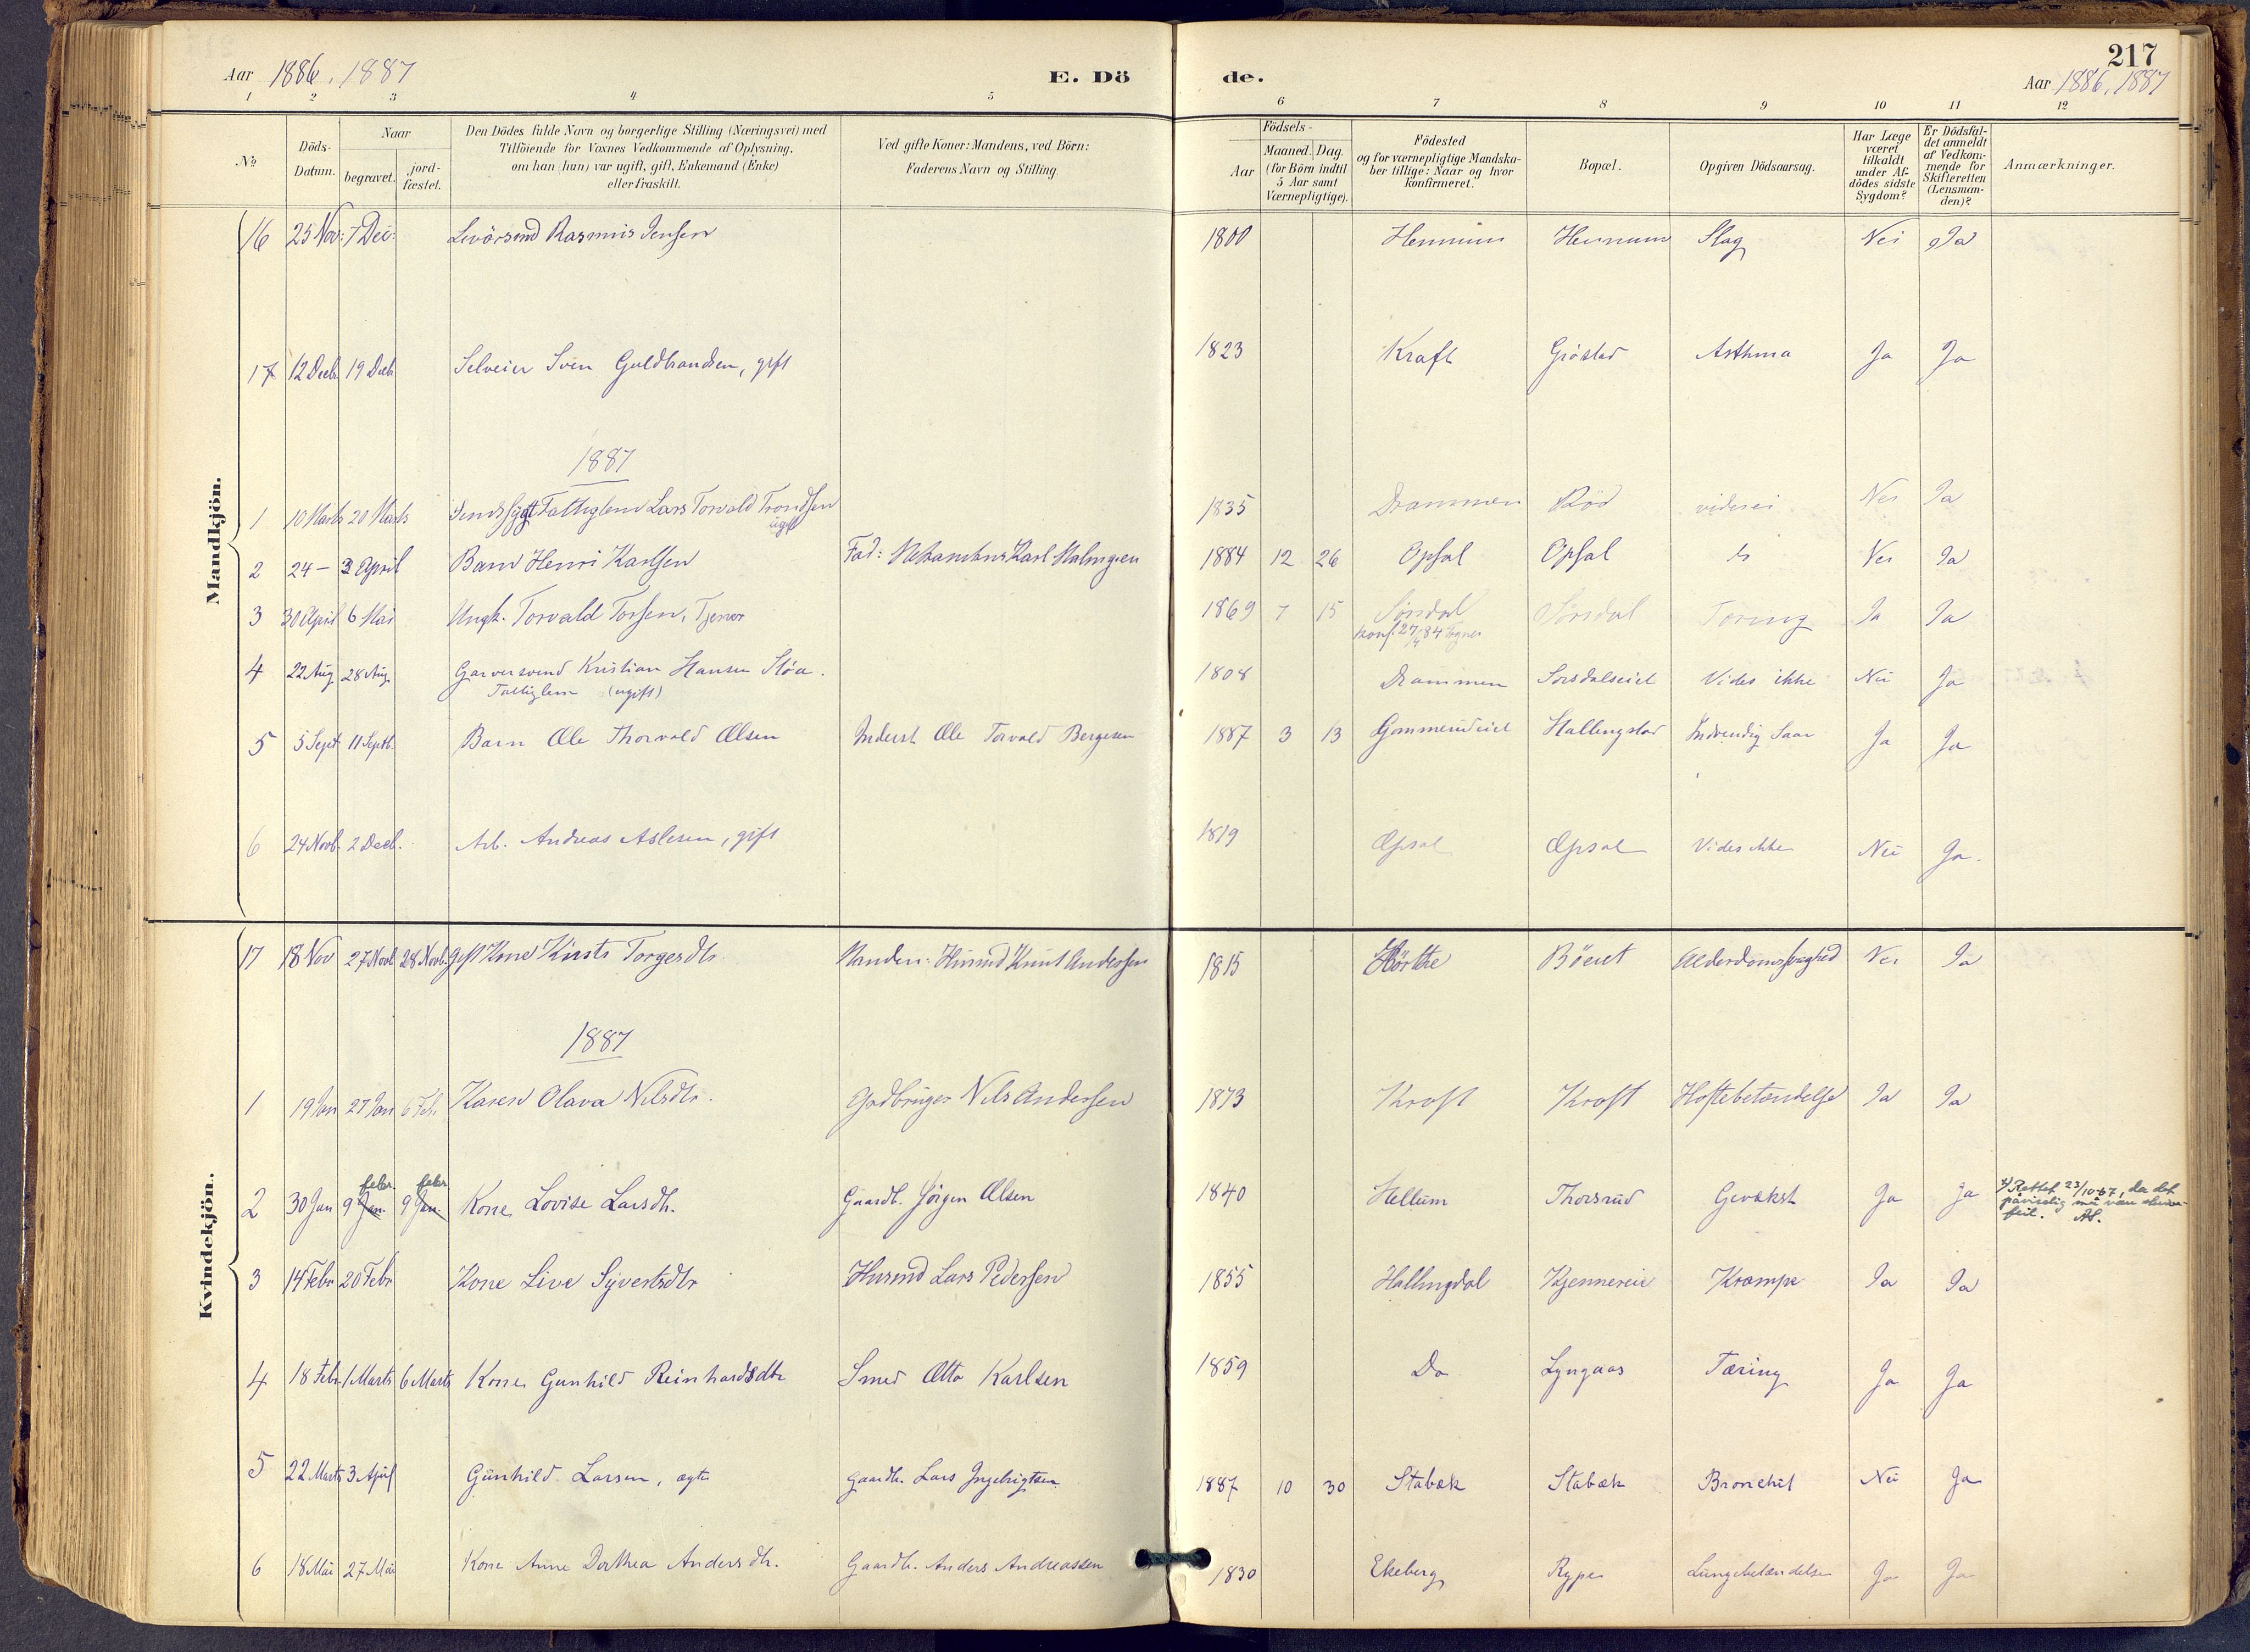 Aar 1886, 1887 E. Dö
de. 217
Aar 1886, 1887
1 2 3 4 5
6 7 8 9 10 11 12
№
Döds-
Datum.
Naar
begravet.
jord-
fæstet.
Den Dödes fulde Navn og borgerlige Stilling (Næringsvei) med
Tilföiende for Voxnes Vedkommende af Oplysning,
om han (hun) var ugift, gift, Enkemand (Enke)
eller fraskilt.
Ved gifte Koner: Mandens, ved Börn:
Faderens Navn og Stilling.
Födsels-
Aar
Maaned. Dag.
(for Börn indtil
5 Aar samt
Værnepligtige).
Födested
og for værnepligtige Mandska-
ber tillige: Naar og hvor
konfirmeret.
Bopæl.
Opgiven Dödsaarsag.
Har Læge
været
tilkaldt
under Af-
dödes sidste
Sygdom?
Er Dödsfal-
det anmeldt
af Vedkom-
mende for
Skifteretten
(Lensman-
den)?
Anmærkninger.
Mandkjön.
16 25 Nov: 7 Dec: Rasmus Jensen 1800 Slag Nei Ja
17 12 Decb. 19 Decb Selveier Sven Guldbrandsen, gift 1823 Kraft Gröstad Asthma Ja Ja
1887
1 10 Marts 20 Marts Sindssygt Fattiglem Lars Torvald Trondsen
ugift
1835 Drammen Röd Nei Ja
2 24 — 3 April Barn Henri Karlsen Fad: Karl Malmgren 1884 12 26 Opsal Opsal Nei Ja
3 30 April 6 Mai Ungk. Torvald Torsen, Tjener 1869 7 15 Sörsdal Sörsdal Tæring Ja Ja
konf. 27/4 84
4 22 Aug. 28 Aug. Garversvend Kristian Hansen Slöa. 1808 Drammen Sorsdalseiet Vides ikke Nei Ja
Fattiglem (ugift)
5 5 Sept 11 Septb. Barn Ole Thorvald Olsen Inderst Ole Torvald Bergesen 1887 3 13 Gommerudeiet Hallingstad Indvendig Saar Ja Ja
6 24 Novb. 2 Decb. Arb. Andreas Aslesen, gift 1819 Opsal Opsal Vides ikke Nei Ja.
Kvindekjön.
17 18 Nov 27 Novb 28 Novb. gift Kone Kirsti Torgersdtr Manden: Husmd Knut Andersen 1815 Hörthe Böeiet Alderdomssvaghed Nei Ja
1887
1 19 Jan 27 Jan 6 Feb Karen Olava Nilsdtr. Grdbruger Nils Andersen 1873 Kroft Kroft Hoftebetændelse Ja Ja
febr. febr
2 30 Jan 9 Jan. 9 Jan. Kone Lovise Larsdtr. Gaardb. Jörgen Olsen 1840 Hellum Thorsrud Gevækst Ja Ja
Rettet 23/10-67, da det
påviselig må være skrive-
feil.
3 14 Febr 20 Febr Kone Live Syvertsdtr Husmd Lars Pedersen 1855 Hallingdal Kjennereie Krampe Ja Ja
4 18 Feb. 1 Marts 6 Marts Kone Gunhild Reinhardsdtr Smed Otto Karlsen 1859 Do Lyngaas Tæring Ja Ja
5 22 Marts 3 April Gunhild Larsen, ægte Gaardb. Lars Ingebrigtsen 1887 10 30 Stabæk Stabæk Bronchit Nei Ja
6 18 Mai 27 Mai Kone Anne Dorthea Andersdtr. Gaardb. Anders Andreassen 1830 Ekeberg Rype Lungebetændelse Ja Ja